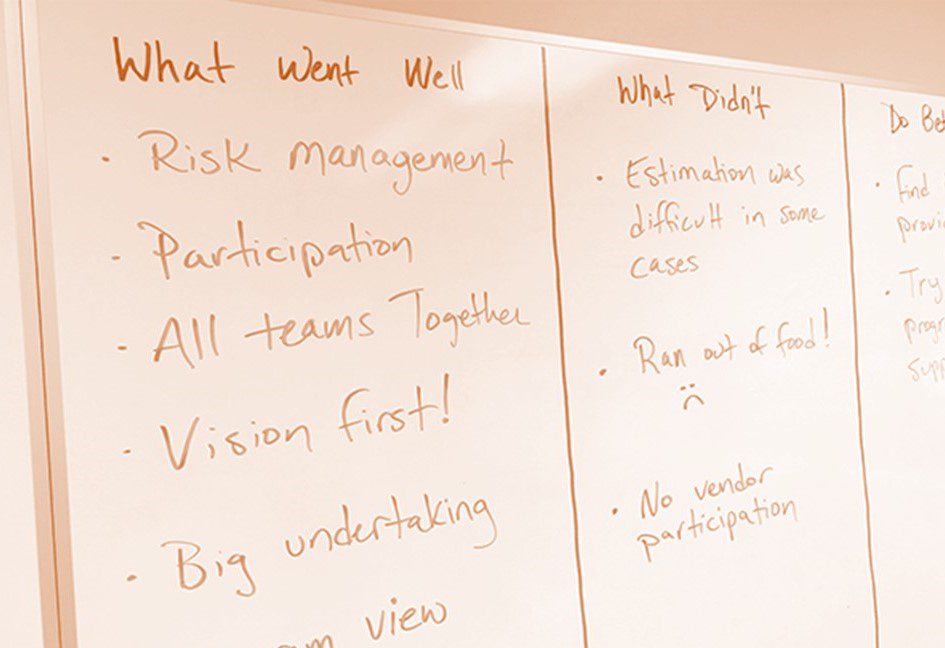 What Went Well
· Risk management
· Participation
· All teams Together
· Vision first!
· Big undertaking
view
What Didn't
· Estimation was
difficult in some
cases
· Ran out of food!
· No vendor
participation
Do
· Find
· Try